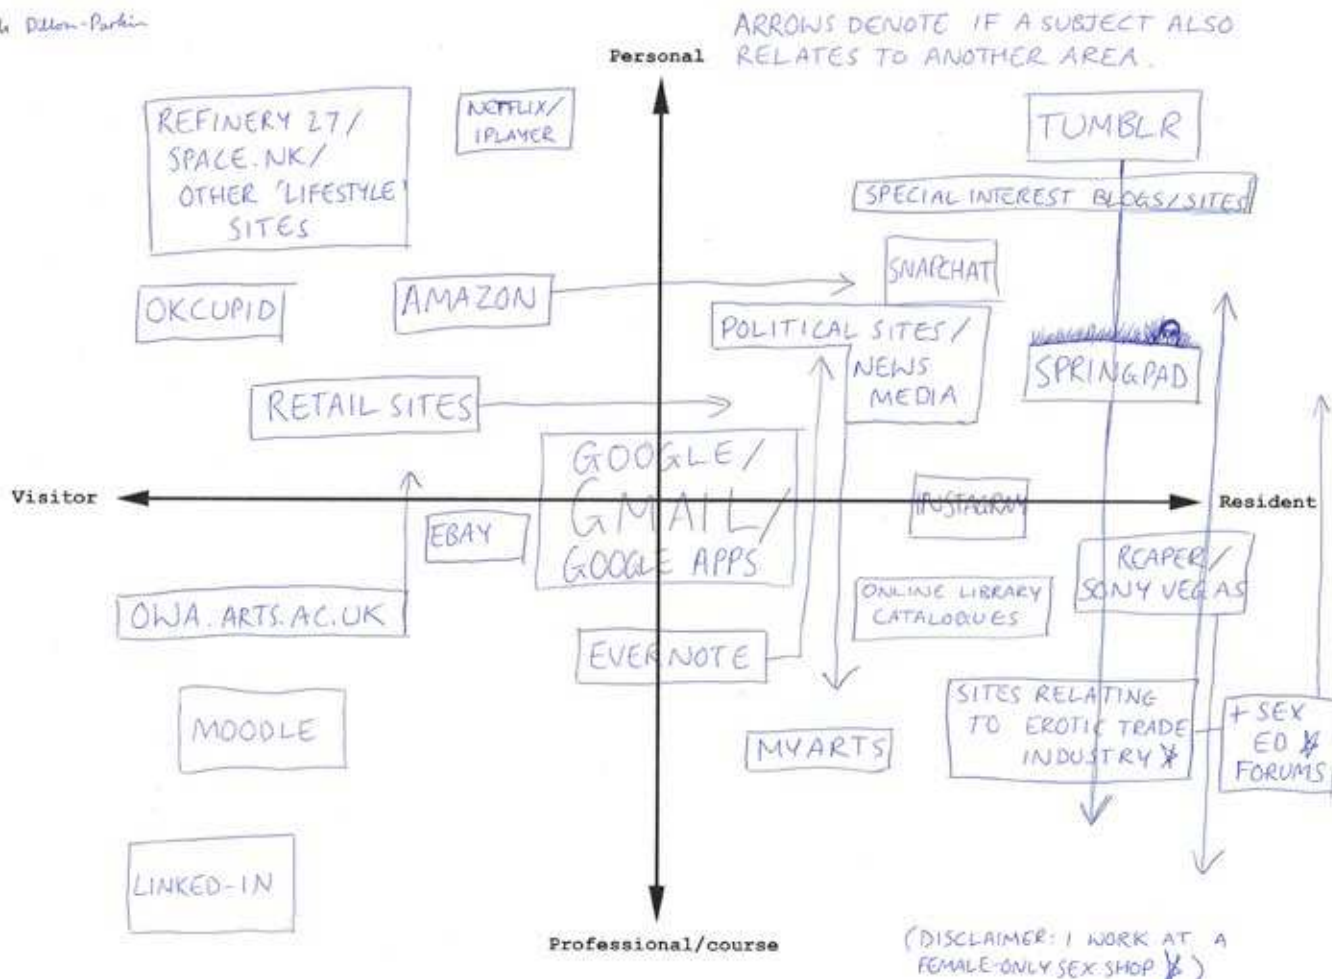 Dillon-Parkin
ARROWS DENOTE IF A SUBJECT ALSO
RELATES TO ANOTHER AREA.
Personal
REFINERY 27/
SPACE.NK/
OTHER 'LIFESTYLE'
SITES
NETFLIX/
IPLAYER
TUMBLR
SPECIAL INTEREST BLOGS/SITES
SNAPCHAT
OKCUPID
AMAZON
POLITICAL SITES/
NEWS
MEDIA
SPRINGPAD
RETAIL SITES
GOOGLE/
GMAIL/
GOOGLE APPS
Visitor
Resident
INSTAGRAM
EBAY
REAPER/
SONY VEGAS
ONLINE LIBRARY
CATALOGUES
OWA.ARTS.AC.UK
EVERNOTE
SITES RELATING
TO EROTIC TRADE
INDUSTRY *
+ SEX
ED *
FORUMS
MOODLE
MYARTS
LINKED-IN
Professional/course
(DISCLAIMER: I WORK AT A
FEMALE-ONLY SEX SHOP *)